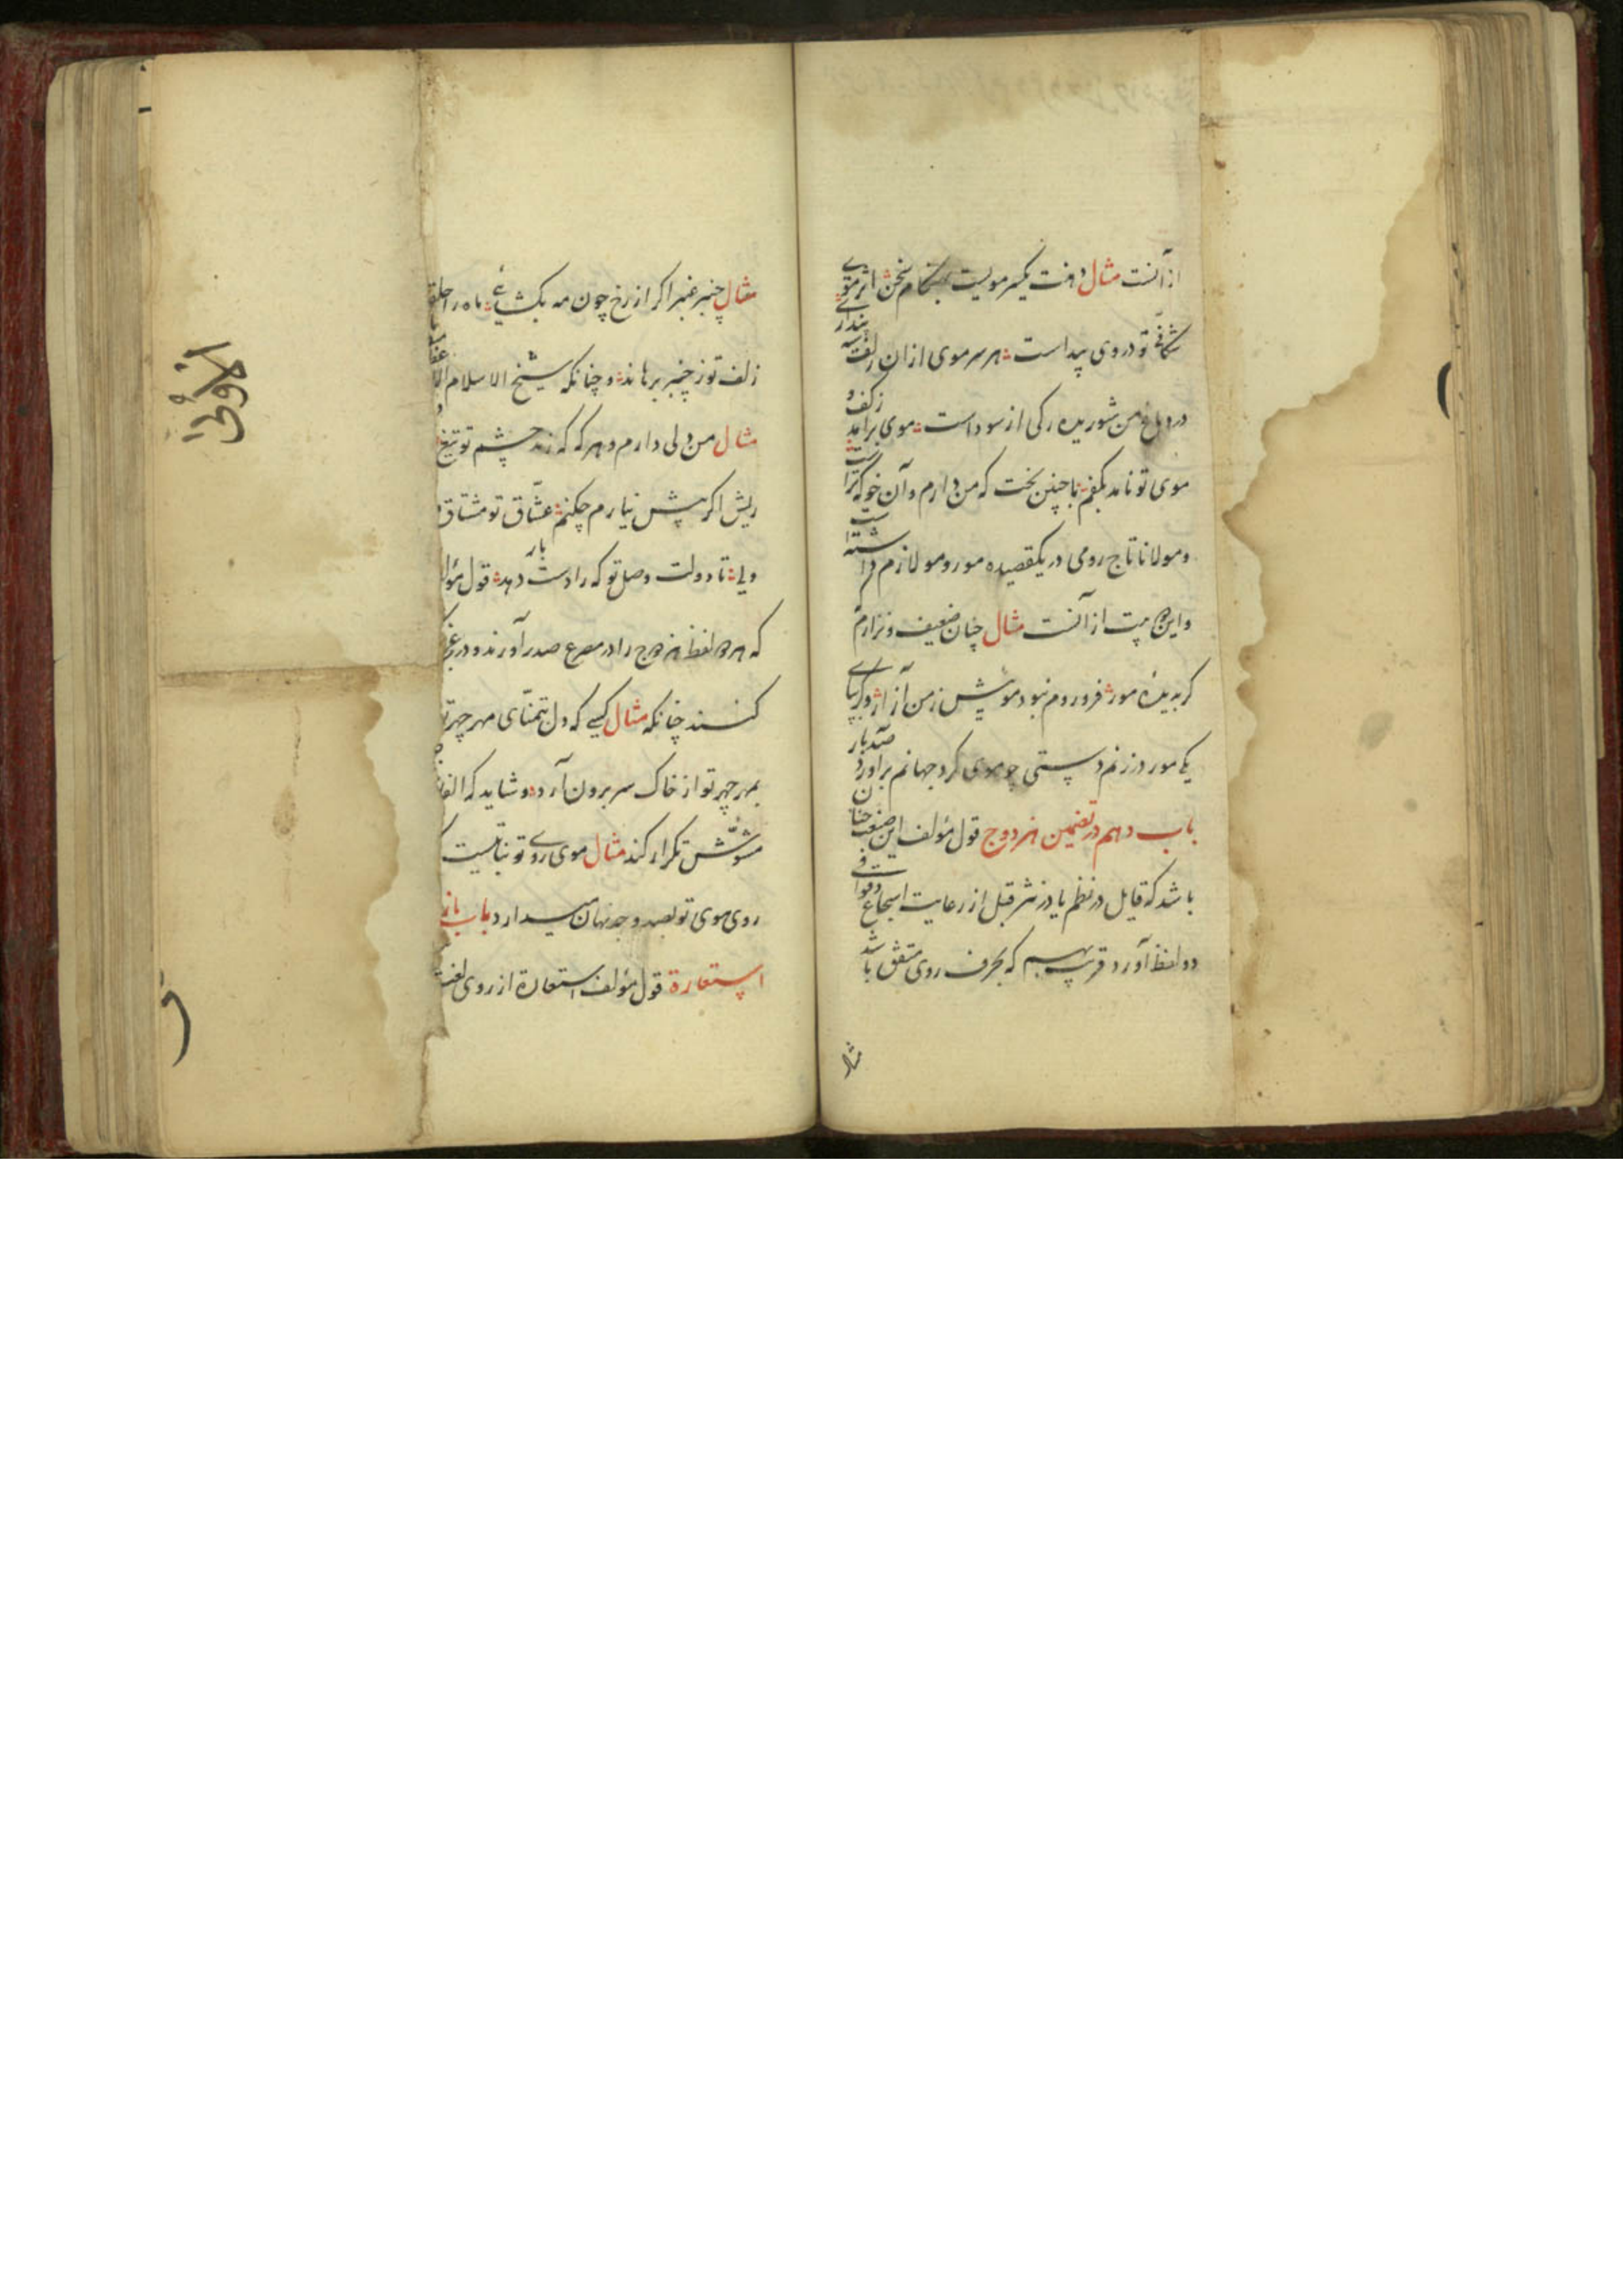 از آنست مثال دهنت یکسر مویست بهنگام سخن اثر موی
شکافی تو در وی پیداست هر سر موی از ان زلف سیه پنداری
در دماغ من شوریده رکی از سوداست موی برآمد ز کف و
موی تو نامد بکفم با چنین بخت که من دارم و آن خو که تراست
و مولانا تاج رومی در یکقصیده مور و مو لازم داشته است
و این بیت از آنست مثال چنان ضعیف و نزارم
کر بدیدهٔ مور فرو روم نبود مویش ز من آزار وگر بپای
یکی مور در زنم دستی چو موی کرد جهانم برآورد صد بار
باب دهم در تضمین مزدوج قول مؤلف این صنعت چنان
باشد که قایل در نظم یا در نثر قبل از رعایت اسجاع و قوافی
دو لفظ آورد قریب بهم که بحرف روی متفق باشد
مثال
مثال چنبر عنبر اگر از رخ چون مه بکشائی ماه را حلقه
زلف تو ز چنبر برهاند و چنانکه شیخ الاسلام
مثال من دلی دارم و هر که که زند چشم تو تیغ
ریش اگر پیش نیارم چکنم عشاق تو مشتاق
ولی تا دولت وصل تو که را دست دهد بار قول مؤلف
که هر دو لفظ مزدوج را در مصرع صدر آورند و در عجز
کنند چنانکه مثال کسی که دل بتمنای مهر چهر تو
بمهر چهر تو از خاک سر برون آرد و شاید که الفاظ
مشوّش تکرار کند مثال موی روی تو بتایست
روی موی تو بصد وجه نهان میدارد باب یاز
استعارة قول مؤلف استعارة از روی لغت